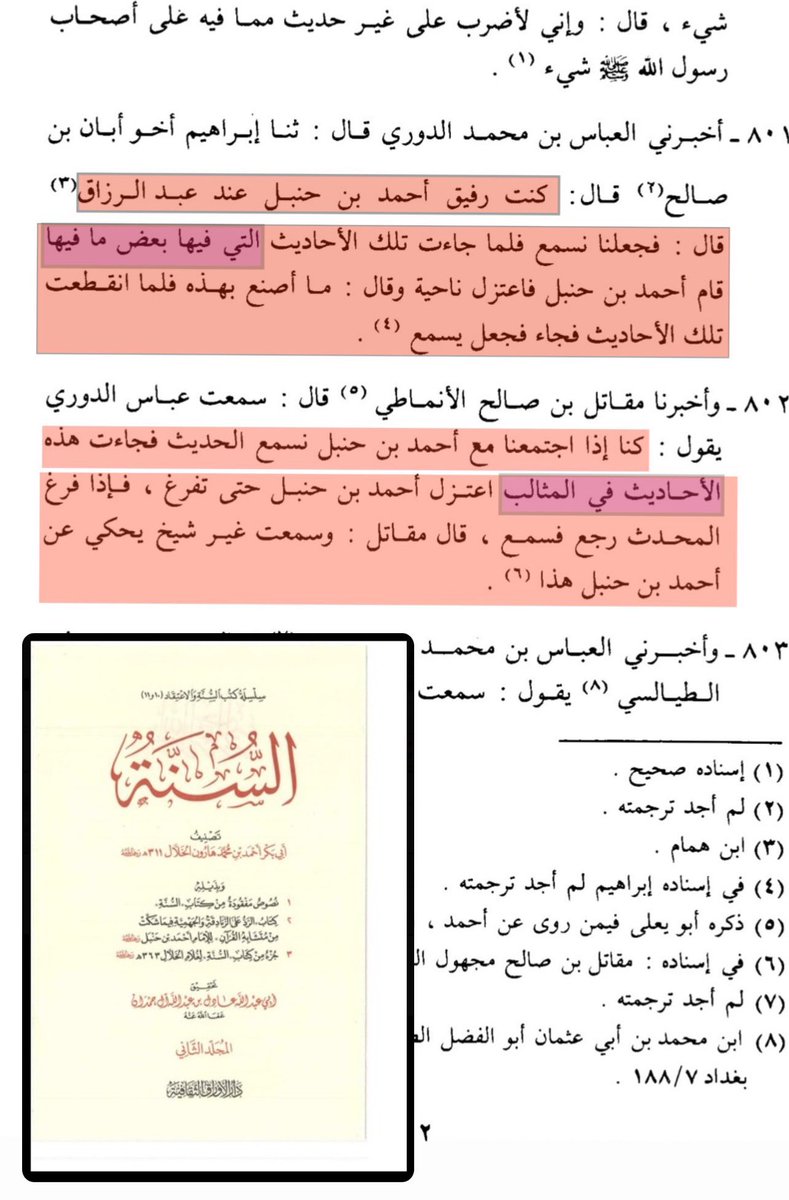 شيء ، قال : وإني لأضرب على غير حديث مما فيه غلى أصحاب
رسول الله ﷺ شيء (١) .
٨٠١ ـ أخبرني العباس بن محمد الدوري قال : ثنا إبراهيم أخو أبان بن
صالح(٢) قال : كنت رفيق أحمد بن حنبل عند عبد الرزاق(٣)
قال : فجعلنا نسمع فلما جاءت تلك الأحاديث التي فيها بعض ما فيها
قام أحمد بن حنبل فاعتزل ناحية وقال : ما أصنع بهذه فلما انقطعت
تلك الأحاديث فجاء فجعل يسمع (٤) .
٨٠٢ ـ وأخبرنا مقاتل بن صالح الأنماطي (٥) قال : سمعت عباس الدوري
يقول : كنا إذا اجتمعنا مع أحمد بن حنبل نسمع الحديث فجاءت هذه
الأحاديث في المثالب اعتزل أحمد بن حنبل حتى تفرغ ، فإذا فرغ
المحدث رجع فسمع ، قال مقاتل : وسمعت غير شيخ يحكي عن
أحمد بن حنبل هذا (٦) .
٨٠٣ ـ وأخبرني العباس بن محمد
الطيالسي (٨) يقول : سمعت
(١) إسناده صحيح .
(٢) لم أجد ترجمته .
(٣) ابن همام .
(٤) في إسناده إبراهيم لم أجد ترجمته .
(٥) ذكره أبو يعلى فيمن روى عن أحمد ،
(٦) في إسناده : مقاتل بن صالح مجهول
(٧) لم أجد ترجمته .
(٨) ابن محمد بن أبي عثمان أبو الفضل
بغداد ١٨٨/٧ .
٢
سلسلة كتب السنة والاعتقاد (١٠ و١١)
السُّنَّة
تصنيف
أبي بكر أحمد بن محمد هارون الخلال ٣١١هـ رحمه الله
ويليه
١ نصوص مفقودة من كتاب السنة.
٢ كتاب الرد على الزنادقة والجهمية فيما شكت
من متشابه القرآن. للإمام أحمد بن حنبل رحمه الله
٣ جزء من كتاب السنة. لغلام الخلال ٣٦٣هـ رحمه الله
تحقيق
أبي عبد الله عادل بن عبد الله آل حمدان
عفا الله عنه
المجلد الثاني
دار الأوراق الثقافية